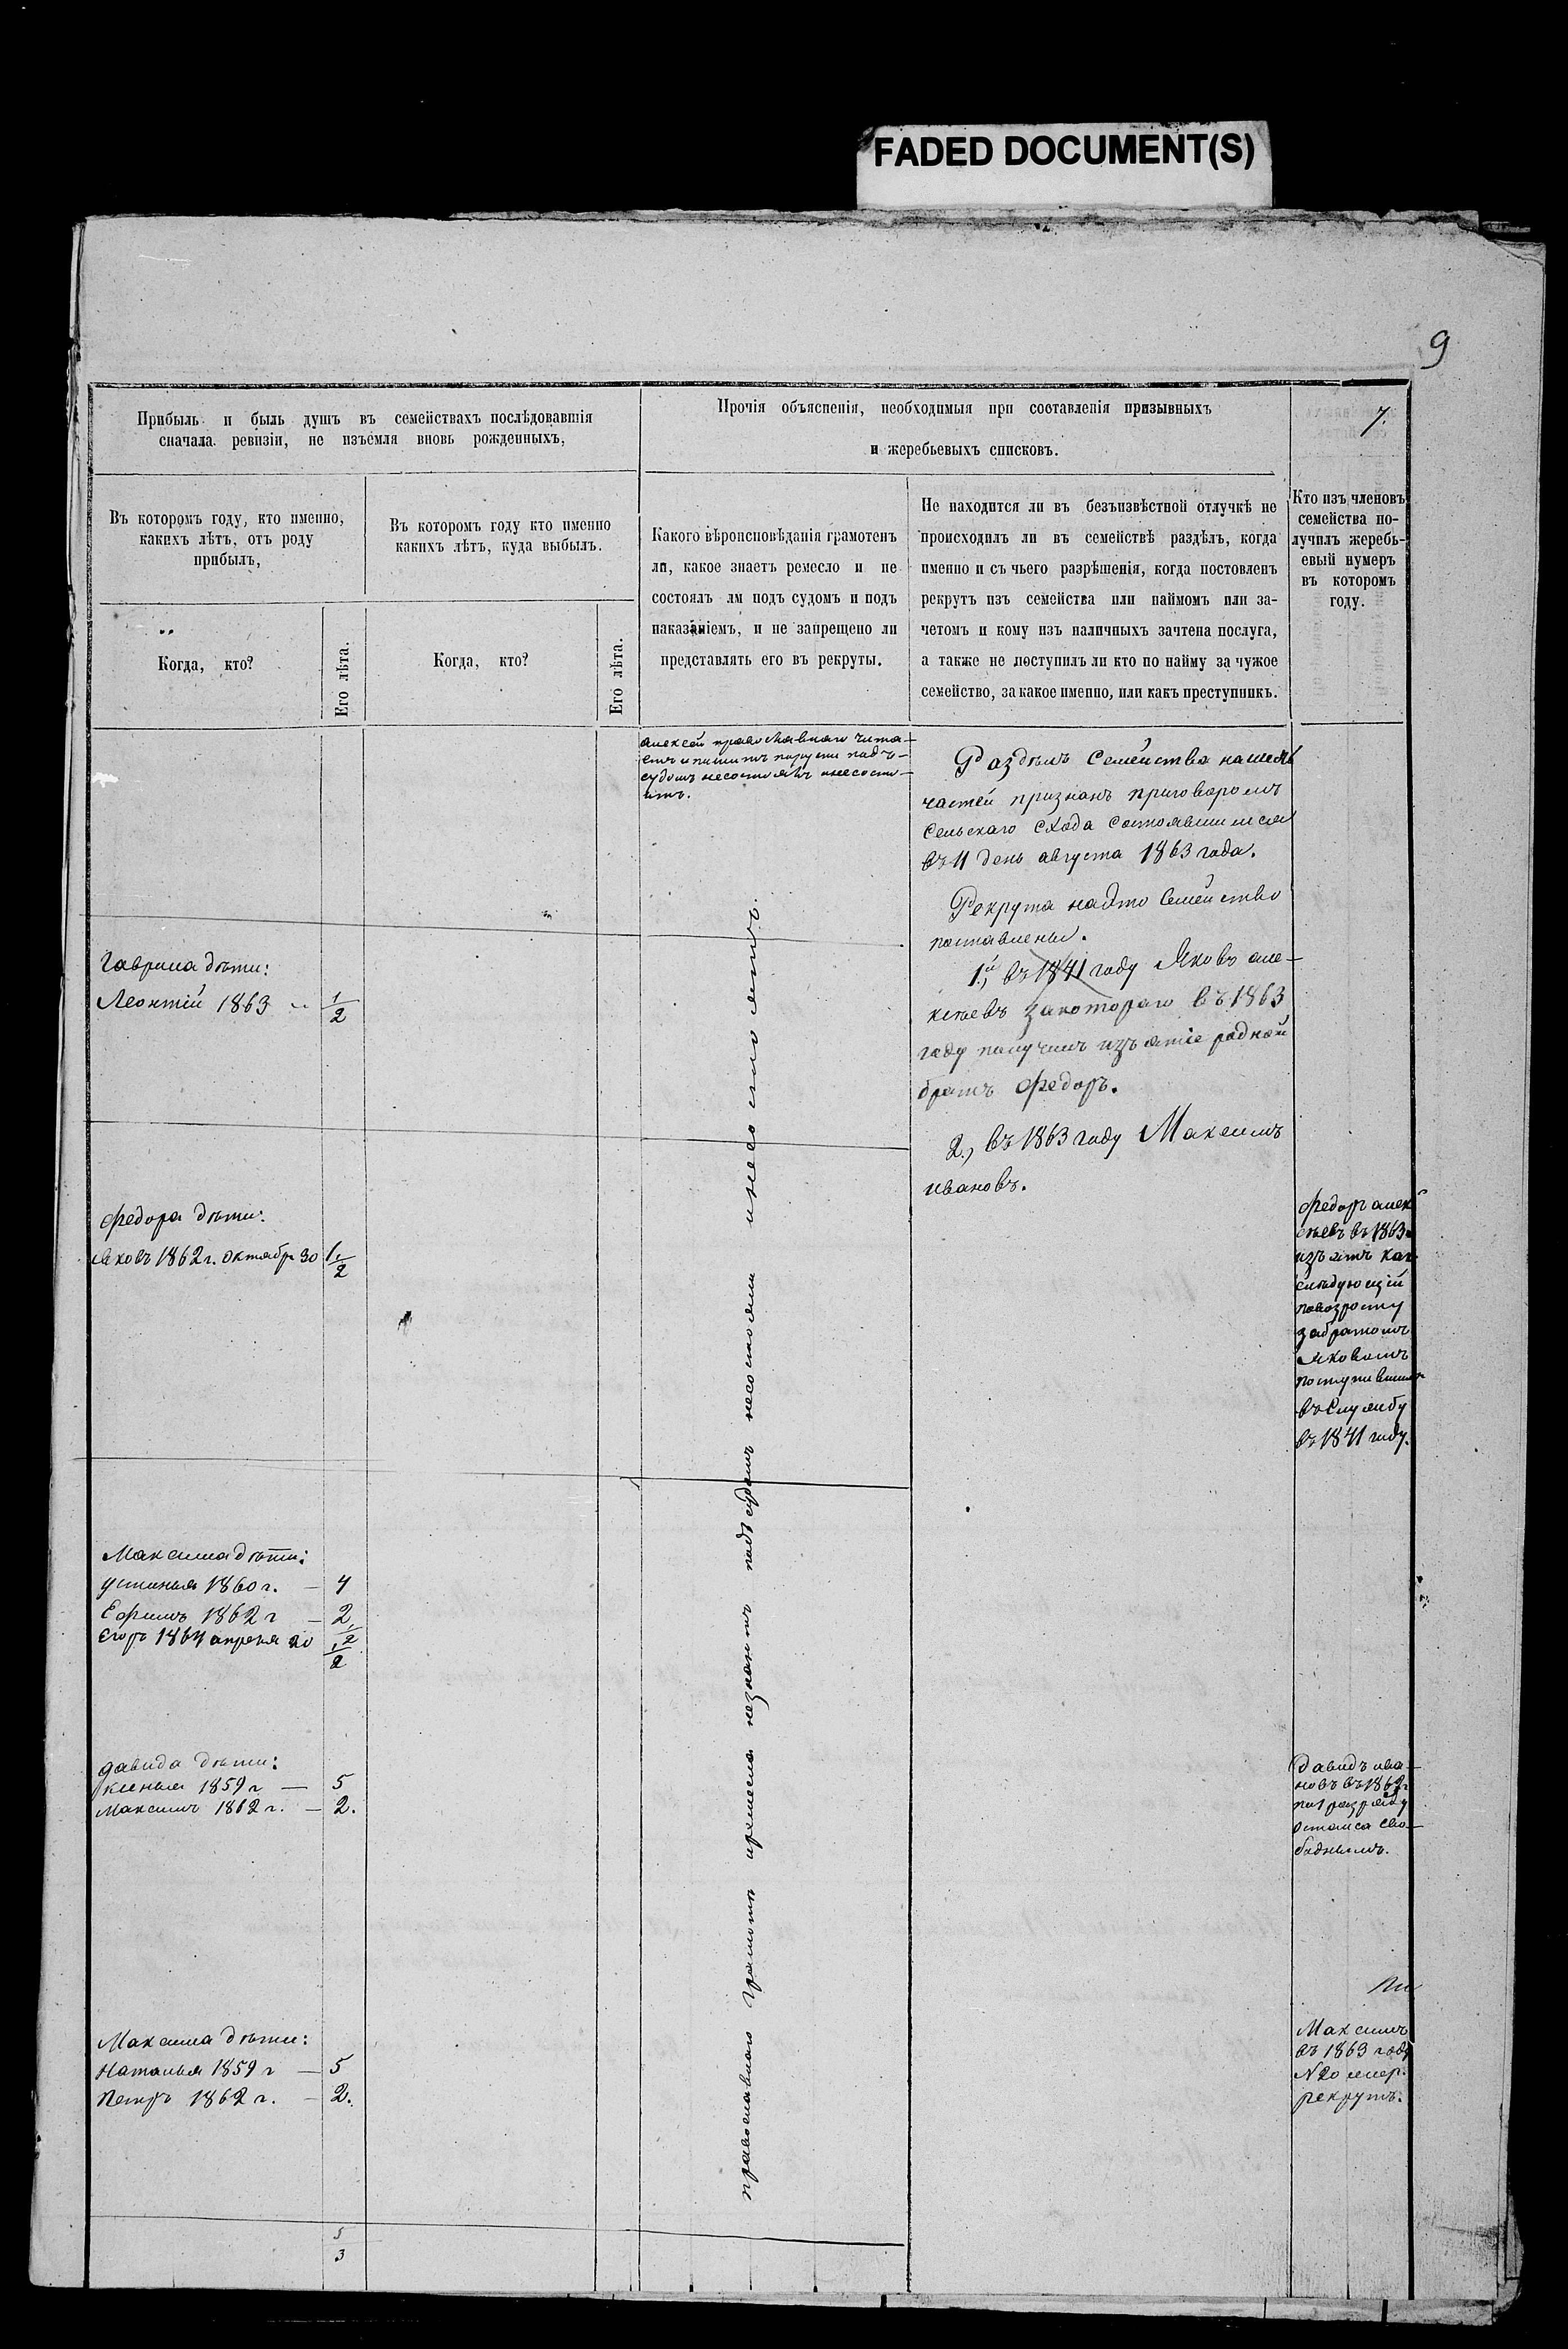 FADED DOCUMENT(S)
9
7.
Прибыль и быль душъ въ семействахъ послѣдовавшія
сначала ревизіи, не изъемля вновь рожденныхъ,
Прочія объясненія, необходимыя при составленія призывныхъ
и жеребьевыхъ списковъ.
Въ которомъ году, кто именно,
какихъ лѣтъ, отъ роду
прибылъ,
Когда, кто?
Его лѣта.
Въ которомъ году кто именно
какихъ лѣтъ, куда выбылъ.
Когда, кто?
Его лѣта.
Какого вѣроисновѣданія грамотенъ
ли, какое знаетъ ремесло и не
состоялъ лм подъ судомъ и подъ
наказаніемъ, и не запрещено ли
представлять его въ рекруты.
Не находится ли въ безъизвѣстной отлучкѣ не
происходилъ ли въ семействѣ раздѣлъ, когда
именно и съ чьего разрѣшенія, когда постовленъ
рекрутъ изъ семейства или наймомъ или за-
четомъ и кому изъ наличныхъ зачтена послуга,
а также не поступилъ ли кто по найму за чужое
семейство, за какое именно, или какъ преступникъ.
Кто изъ членовъ
семейства по-
лучилъ жеребь-
евый нумеръ
въ которомъ
году.
Гаврила дѣти:
Леонтій 1863 1/2
Федора дѣти:
Яковъ 1862 г. октябр 30 1/2
Максима дѣти:
устинья 1860 г. — 4
Ефимъ 1862 г — 2
Егоръ 1864 апреля 20 1/2
давида дѣти:
ксенья 1859 г — 5
Максимъ 1862 г. — 2.
Максима дѣти:
Наталья 1859 г — 5
Петръ 1862 г. — 2.
5
3
алексей православнаго чита-
етъ и пишитъ порусски подъ-
судомъ несостоялъ инесосто-
итъ.
православнаго грамотѣ иремесла незнаютъ подъ судомъ несостояли инесостоятъ.
Раздѣлъ Семейства
частей признанъ приговоромъ
Сельскаго схода состоявшимся
въ 11 день августа 1863 года.
Рекрута наэто Семейство
поставлены.
1й, въ 1841 году Яковъ але-
ксѣевъ закотораго въ 1863
году получилъ изъятіе родной
братъ Федоръ.
2, въ 1863 году Максимъ
ивановъ.
Федоръ алек
сѣевъ въ 1863
изъятъ как
слѣдующій
повозросту
забратомъ
Яковомъ
поступившим
въ Службу
въ 1841 году.
Давидъ ива-
новъ въ 1862 г
по 1 разряду
остался сво-
боднымъ.
Максимъ
въ 1863 году
N 20
рекрутъ.